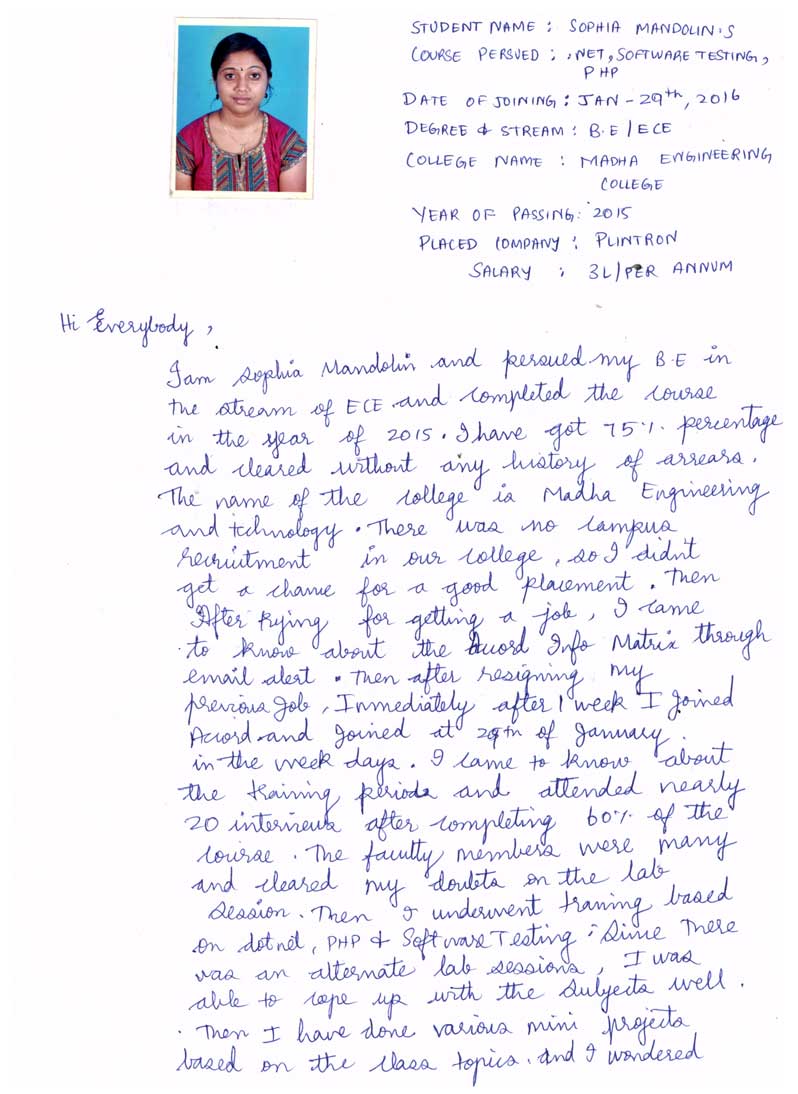 STUDENT NAME : SOPHIA MANDOLIN.S
COURSE PERSUED : .NET, SOFTWARE TESTING,
PHP
DATE OF JOINING : JAN - 29th, 2016
DEGREE & STREAM : B.E / ECE
COLLEGE NAME : MADHA ENGINEERING
COLLEGE
YEAR OF PASSING : 2015
PLACED COMPANY : PLINTRON
SALARY : 3L/PER ANNUM
Hi Everybody,
I am Sophia Mandolin and persued my B.E in
the stream of ECE and completed the course
in the year of 2015. I have got 75% percentage
and cleared without any history of arrears.
The name of the college is Madha Engineering
and technology. There was no campus
recruitment in our college, so I didn't
get a chance for a good placement. Then
After trying for getting a job, I came
to know about the Accord Info Matrix through
email alert. Then after resigning my
previous Job, Immediately after 1 week I Joined
Accord and Joined at 29th of January.
in the week days. I came to know about
the training periods and attended nearly
20 interviews after completing 60% of the
course. The faculty members were many
and cleared my doubts on the lab
session. Then I underwent training based
on dotnet, PHP & Software Testing. Since There
was an alternate lab sessions, I was
able to cope up with the subjects well.
Then I have done various mini projects
based on the class topics. and I wondered